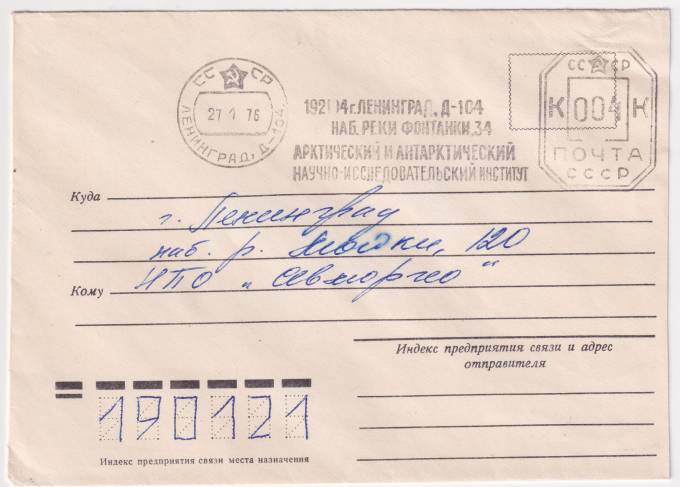 СС СР
ЛЕНИНГРАД, Д-104
27 1 76
192104 г. ЛЕНИНГРАД, Д-104
НАБ. РЕКИ ФОНТАНКИ, 34
АРКТИЧЕСКИЙ И АНТАРКТИЧЕСКИЙ
НАУЧНО-ИССЛЕДОВАТЕЛЬСКИЙ ИНСТИТУТ
СС СР
К 004 К
ПОЧТА
СССР
Куда
г. Ленинград
наб. р. Мойки, 120
Кому
НПО „Севморгео"
Индекс предприятия связи и адрес
отправителя
190121
Индекс предприятия связи места назначения